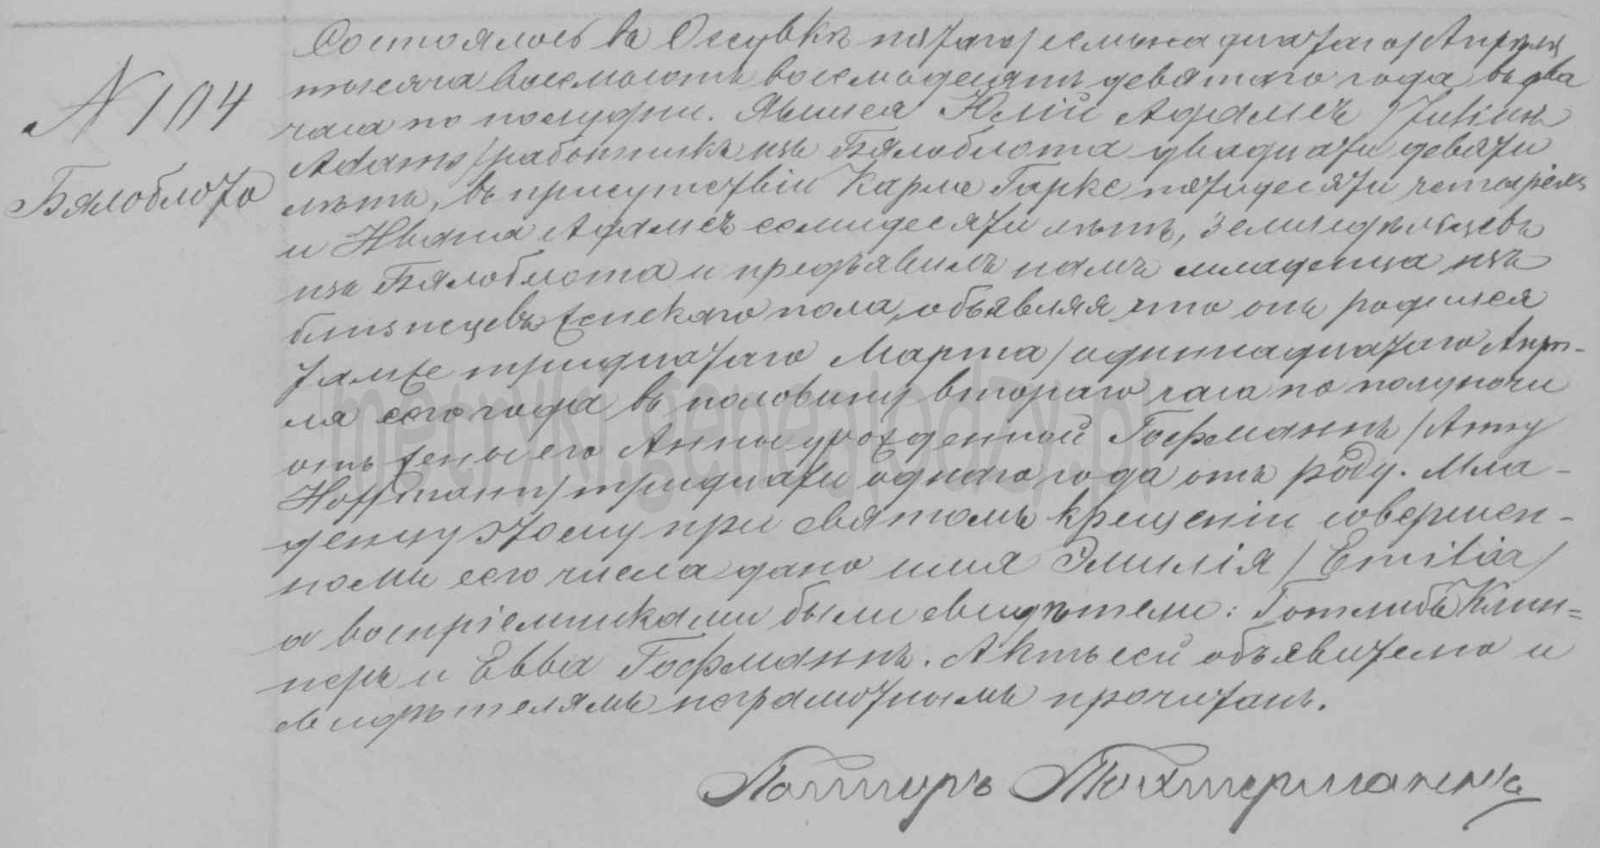 № 104
Бялоблота
Состоялось въ Осувкѣ пятаго/семьнадцатаго/Апрѣля
тысяча восемьсотъ восемьдесятъ девятаго года въ два
часа по полудни. Явился Юлій Адамсъ /Julius
Adams/работникъ изъ Бялоблота двадцати девяти
лѣтъ, въ присутствіи Карла Гарке пятидесяти четырехъ
и Ивана Адамсъ семидесяти лѣтъ, земледѣльцевъ
изъ Бялоблота и предъявилъ намъ младенца изъ
близнецевъ женскаго пола, объявляя что онъ родился
тамже тридцатаго Марта/одиннадцатаго Апрѣ-
ля сего года въ половину втораго часа по полуночи
отъ жены его Анны урожденной Гофманнъ /Anny
Hoffmann/ тридцати одного года отъ роду. Мла-
денцу этому при святомъ крещеніи совершен-
номъ сего числа дано имя Эмилія /Emilia/
а воспріемниками были свидѣтели: Готлибъ Клин-
перъ и Евва Гофманнъ. Актъ сей объявителю и
свидѣтелямъ неграмотнымъ прочитанъ.
Пасторъ
metryki.genealodzy.pl